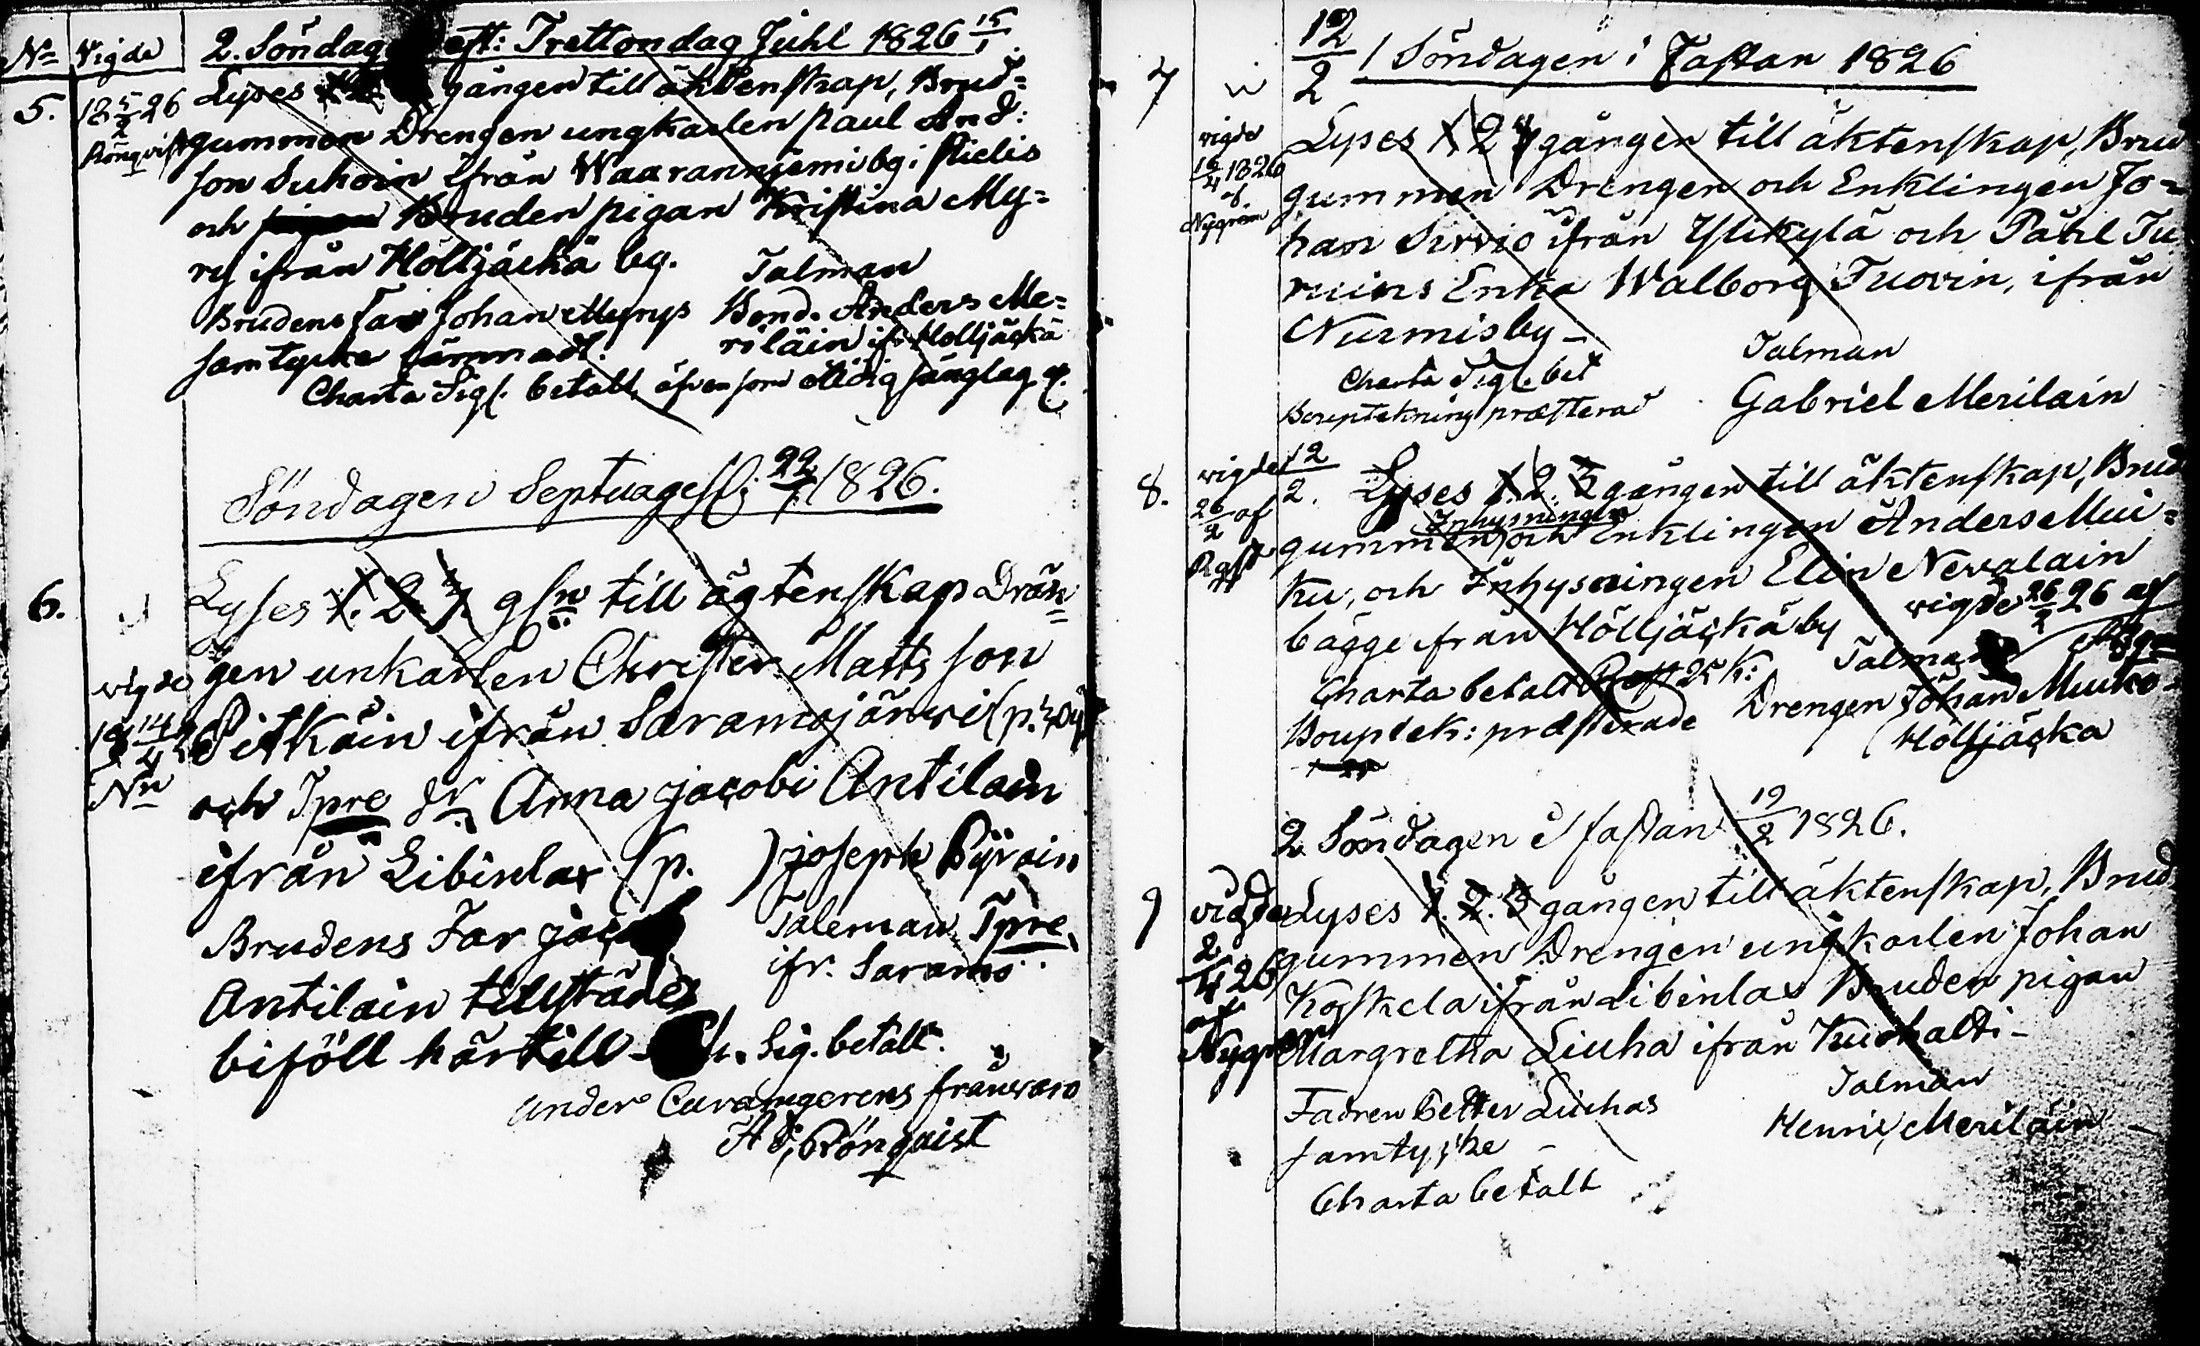 No Vigde 2. Söndag eft: Trettondag Juhl 1826 15/1
5. 18 5/2 26 Rönqvist
Lyses gången till äktenskap, Brud=
gummen Drengen ungkarlen Paul And:
son Suhoin ifrån Waaranniemi by i Pielis
och Bruden pigan Kristina My=
ry ifrån Höljäckä by.
Brudens far Johan Myrys
samtycke lämnadt.
Talman
Bond. Anders Me=
riläin ifr. Holljäckä
Charta Sigl. betalt, äfvensom
Söndagen Septuages: 22/1 1826.
6.
vigde
18 14/4 26
Nn
Lyses 1. 2. 3. gsn till ägtenskap Drän=
gen unkarlen Christer Matts son
Pitkäin ifrån Saramojärwi (p.
och Tpre dr Anna Jacobi Antilain
ifrån Libinlax (p. ) Joseph Pyrain
Brudens Far
Antilain tillstädes
biföll härtill
Taleman Tpre
ifr. Saramo
Sig. betalt.
under frånvaro
H Rönqvist
12/2 1 Söndagen i Fastan 1826
7
vigde
16/4 1826
af
Nygren
Lyses 1, 2 gången till äktenskap, Brud
gummen Drengen och Enklingen Jo=
han Sirviö ifrån Ylikylä och Påhl Tu
ruins Enka Walborg Tuovin, ifrån
Nurmisby –
Charta Sigl. bet
Bouptekning præsterad
Talman
Gabriel Merilain
8.
vigde
26/2 af
12/2. Lyses 1. 2. 3 gången till äktenskap, Brud
Inhysningen
gummen och Enklingen Anders Mui=
ku, och Inhysningen Elin Nevalain
bägge ifrån Hölljäckä by
vigde 26/2 26 af
Charta betalt 25 k:
Bouptek: præsterade
Talman
Drengen Johan Muiko
Holljäcka
2 Söndagen i fastan 19/2 1826.
9
vigde
2/4 26
af
Nygren
Lyses 1. 2. 3 gången till äktenskap, Brud
gummen Drengen ungkarlen Johan
Koskela ifrån Libinlax Bruden pigan
Margretha Liuha ifrån Kuokalti –
Fadren Petter Liuhas
samtycke –
Charta betalt
Talman
Henric Meriläin –